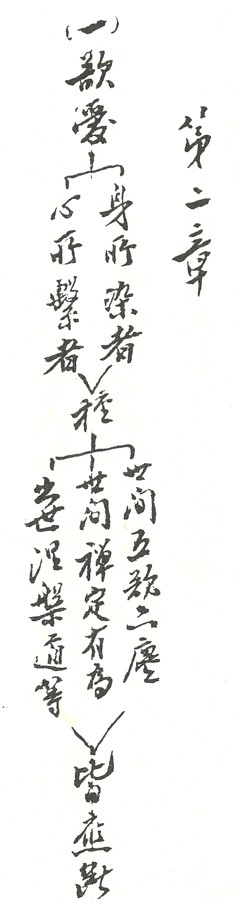 第二章
(一)欲愛
身所染者
心所繫者
種
世间五欲六塵
世间禅定有為
出世涅槃道等
皆應断